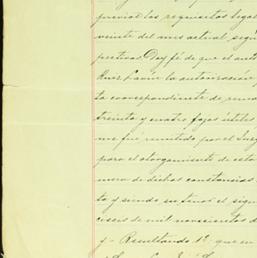 previal los requisitos legal
veinte del mes actual, segú
pectivas. Doy fé de que el auto
la autorización y
ta correspondiente de
treinta y cuatro fojas útiles
me fué remitido por el Juzg
para el otorgamiento de esta
mero de dichas constancias
to y siendo su tenor el sigui
de mil novecientos d
y - Resultando 1º que en